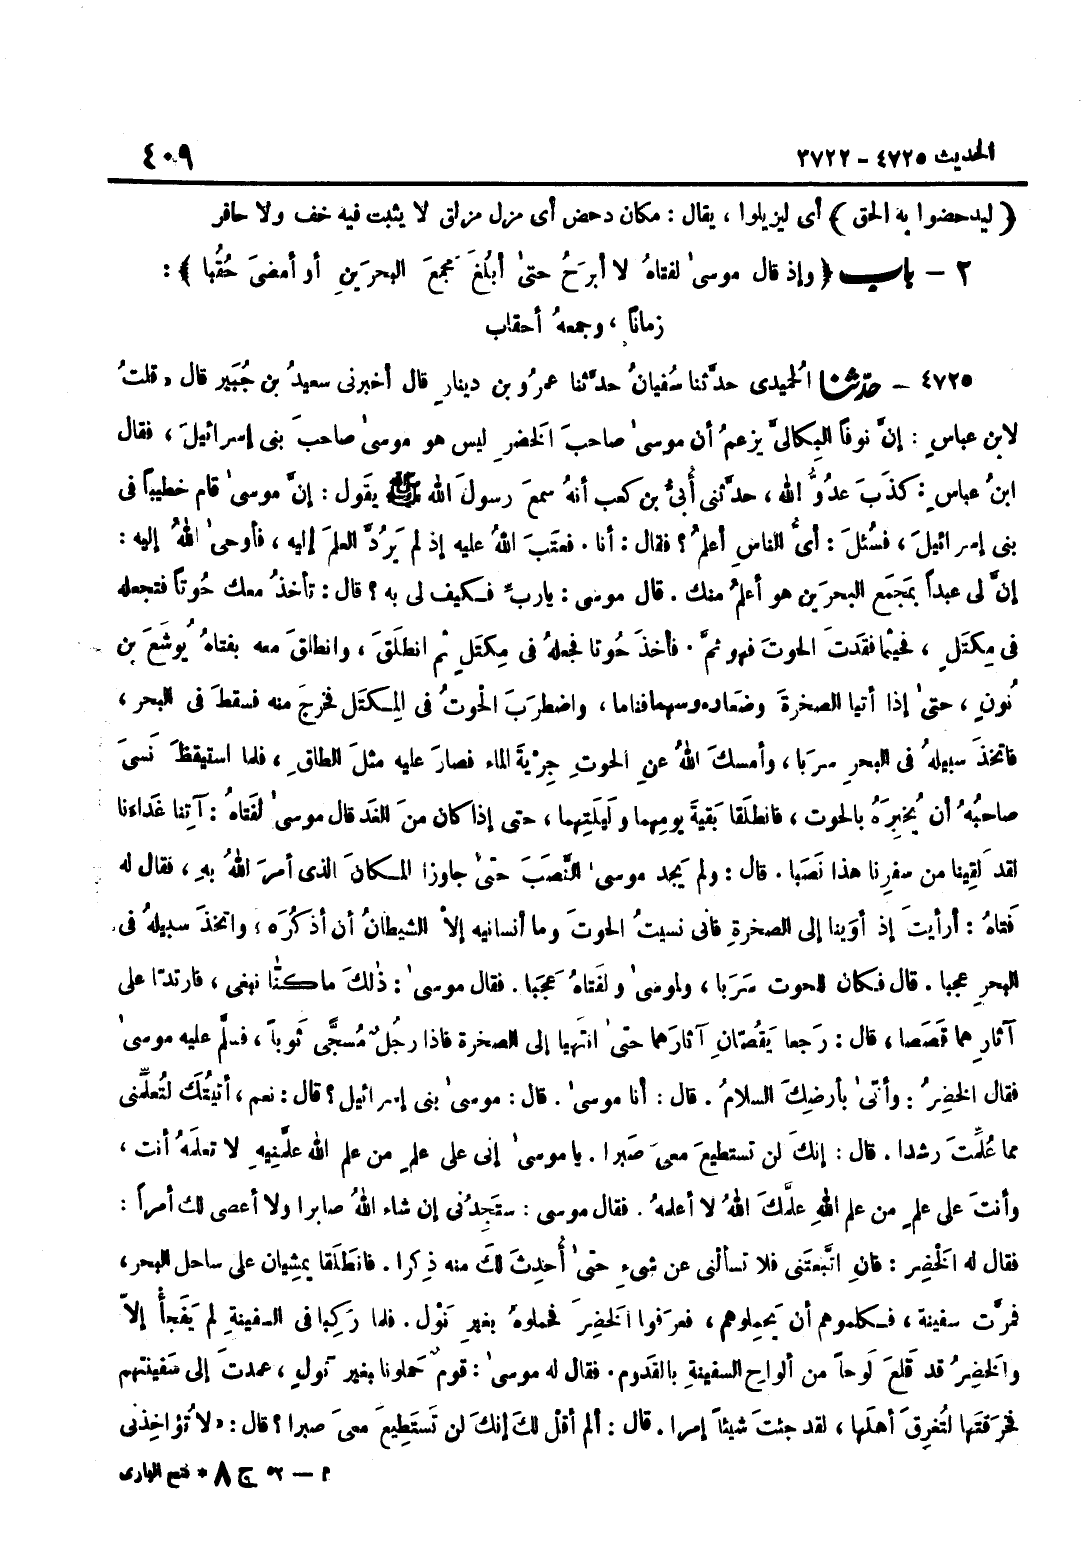 الحديث ٤٧٢٥ - ٣٧٢٢ ٤٠٩
﴿ ليدحضوا به الحق ﴾ أى ليزيلوا ، يقال : مكان دحض أى مزل مزلق لا يثبت فيه خف ولا حافر
٢ - باب ﴿ وإذ قال موسىٰ لفتاهُ لا أبرَحُ حتىٰ أبلُغَ مجمعَ البحرَينِ أو أمضىَ حُقُبا ﴾ :
زماناً ، وجمعهُ أحقاب
٤٧٢٥ - حدثنا الُحميدى حدَّثنا سُفيانُ حدَّثنا عمرُو بن دينارٍ قال أخبرنى سعيدُ بن جُبَير قال « قلتُ
لابن عباسٍ : إنَّ نوفاً البِكالىَّ يزعمُ أن موسىٰ صاحبَ الخضرِ ليس هو موسىٰ صاحبَ بنى إسرائيلَ ، فقال
ابنُ عباسٍ : كذَبَ عدُوُّ الله ، حدَّثنى أُبىُّ بن كعب أنهُ سمعَ رسولَ الله ﷺ يقول : إنَّ موسىٰ قام خطيباً فى
بنى إسرائيلَ ، فسُئلَ : أىُّ الناسِ أعلمُ ؟ فقال : أنا . فعتَبَ اللهُ عليه إذ لم يَرُدَّ العلمَ إليه ، فأوحىٰ اللهُ إليه :
إنَّ لى عبداً بمَجمَع البحرَين هو أعلمُ منك . قال موسى : يا ربِّ فـكيف لى به ؟ قال : تأخذُ معك حُوتاً فتجعله
فى مِكتَلٍ ، فحيثما فقَدتَ الحوتَ فهو ثمَّ . فأخذَ حُوتا فجعلهُ فى مِكتَلٍ ثم انطلَقَ ، وانطلقَ معه بفتاهُ يُوشَعَ بن
نُونٍ ، حتىٰ إذا أتيا الصخرةَ وضَعا رءوسهما فناما ، واضطرَبَ الْحوتُ فى المِـكتَل فخرجَ منه فسقطَ فى البحر ،
فاتخذَ سبيلهُ فى البحرِ سرَبا ، وأمسكَ اللهُ عنِ الحوتِ جِرْيةَ الماء فصارَ عليه مثلَ الطاقِ ، فلما استيقظَ نَسىَ
صاحبُهُ أن يُخبِرَهُ بالحوت ، فانطلَقا بقيةَ يومِهما ولَيلَتِهما ، حتى إذا كان منَ الغَد قال موسىٰ لفَتاهُ : آتِنا غَداءَنا
لقد لَقِينا من سفرِنا هذا نَصَبا . قال : ولم يَجِد موسىٰ النَّصَبَ حتىٰ جاوزا المـكانَ الذى أمرَ اللهُ بهِ ، فقال له
فَتاهُ : أرأيتَ إذ أوَينا إلى الصخرةِ فانى نسيتُ الحوتَ وما أنسانيه إلاّ الشيطانُ أن أذكُرَه ، واتخذَ سبيلهُ فى
البحرِ عجبا . قال فـكان للحوت سَرَبا ، ولموسىٰ ولفَتاهُ عَجَبا . فقال موسىٰ : ذٰلكَ ما كنّا نبغى ، فارتدّا على
آثارِهما قَصَصا ، قال : رَجعا يَقُصّانِ آثارَهما حتىٰ انتهَيا إلى الصخرة فاذا رجُلٌ مُسجَّى ثَوباً ، فسلَّم عليه موسىٰ
فقال الخضِرُ : وأنّىٰ بأرضِكَ السلامُ . قال : أنا موسىٰ . قال : موسىٰ بنى إسرائيل ؟ قال : نعم ، أتيتُكَ لتُعلِّمنى
مما عُلِّمتَ رشدا . قال : إنكَ لن تستطيعَ معىَ صَبرا . يا موسىٰ إنى على علمٍ من علم الله علَّمنِيهِ لا تعلمهُ أنت ،
وأنتَ على علمٍ من علمِ اللهِ علَّمكَ اللهُ لا أعلمهُ . فقال موسى : ستَجِدُنى إن شاء اللهُ صابرا ولا أعصى لك أمراً :
فقال له الْخضِر : فانِ اتَّبعتَنى فلا تسألْنى عن شىءِ حتىٰ أُحدِثَ لكَ منه ذِكرا . فانطلَقا يمشِيان على ساحل البحر،
فمرَّت سفينة ، فـكلموهم أن يَحملوهم ، فعرَفوا الخضِرَ فحملوهُ بغيرِ نَوْل . فلما رَكِبا فى السفينةِ لم يَفجأْ إلاّ
والخضِرُ قد قَلعَ لَوحاً من ألواحِ السفينةِ بالقَدوم . فقال له موسىٰ : قومٌ حَملونا بغير نَولٍ ، عمدتَ إلى سَفينتهم
فخرَقتَها لتُغرِقَ أهلَها ، لقد جئتَ شيئاً إمرا . قال : ألم أقلْ لكَ إنكَ لن تَستَطِيعَ معىَ صبرا ؟ قال : « لا تُؤاخِذنى
م - ٥٢ ج ٨ * فتح البارى